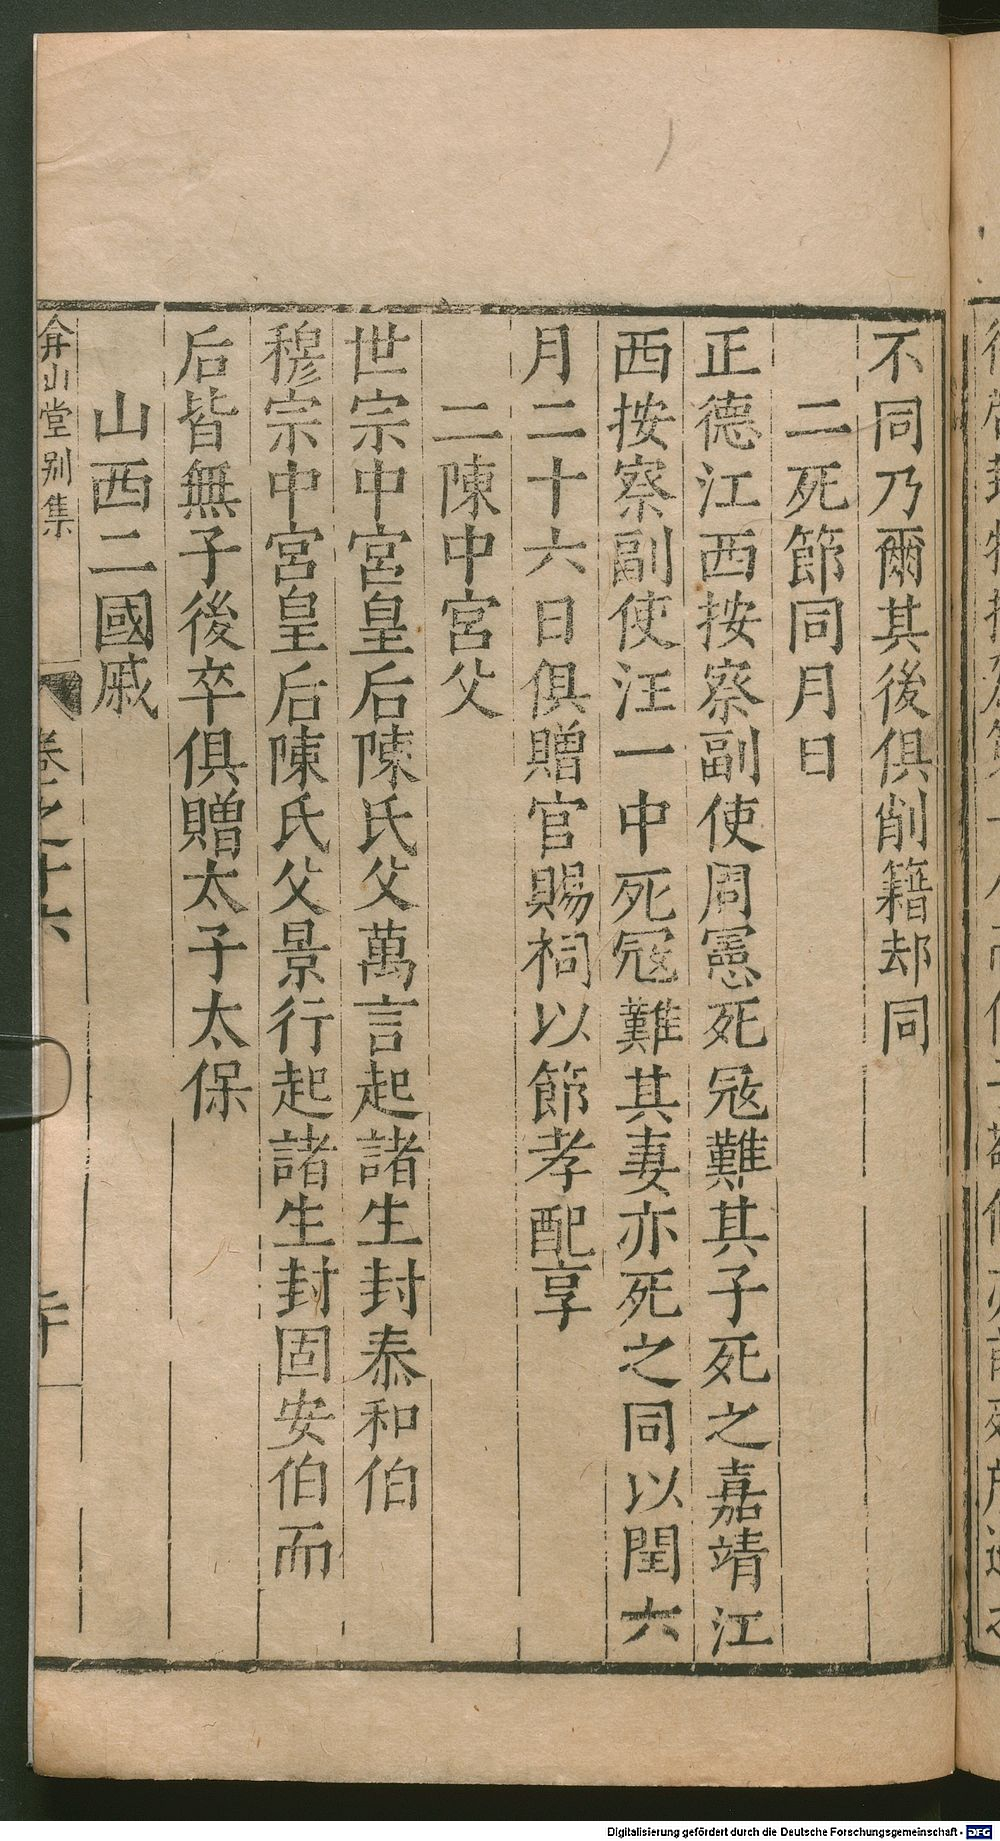 不同乃爾其後俱削籍却同
二死節同月日
正德江西按察副使周憲死冦難其子死之嘉靖江
西按察副使汪一中死冦難其妻亦死之同以閏六
月二十六日俱贈官賜祠以節孝配享
二陳中宮父
世宗中宮皇后陳氏父萬言起諸生封泰和伯
穆宗中宮皇后陳氏父景行起諸生封固安伯而
后皆無子後卒俱贈太子太保
山西二國戚
弇山堂别集
卷之十六
Digitalisierung gefördert durch die Deutsche Forschungsgemeinschaft - DFG